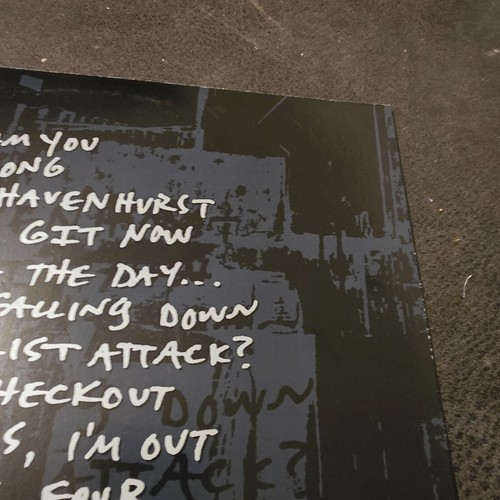 YOU
HAVENHURST
GIT NOW
THE DAY...
FALLING DOWN
ATTACK?
CHECKOUT
I'M OUT
FOUR
DOWN
ATTACK?